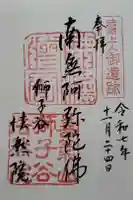 奉拝
南無阿彌陀佛
獅子谷
法然院
令和七年
十一月二十四日